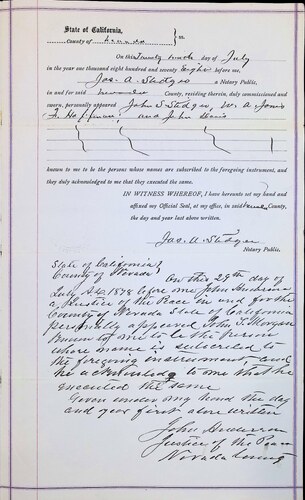 State of California,
County of Nevada } ss.
On this twenty ninth day of July
in the year one thousand eight hundred and seventy Eight before me,
Jas. A. Stidger a Notary Public,
in and for said Nevada County, residing therein, duly commissioned and
sworn, personally appeared John S. Stidger, W. A. Jones
Hoffman, and John Davis
known to me to be the persons whose names are subscribed to the foregoing instrument, and
they duly acknowledged to me that they executed the same.
IN WITNESS WHEREOF, I have hereunto set my hand and
affixed my Official Seal, at my office, in said County
the day and year last above written.
Jas. A. Stidger
Notary Public.
State of California
County of Nevada } On this 29th day of
July A.D. 1878 before me John Anderson
a Justice of the Peace in and for the
County of Nevada State of California
personally appeared John T. Morgan
known to me to be the person
whose name is subscribed to
the foregoing instrument, and
he acknowledged to me that he
executed the same
Given under my hand the day
and year first above written
John Anderson
Justice of the Peace
Nevada County